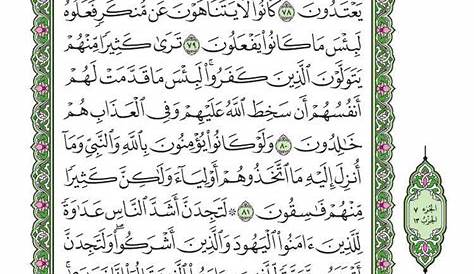 يَعْتَدُونَ ٧٨ كَانُوا۟ لَا يَتَنَاهَوْنَ عَن مُّنكَرٍ فَعَلُوهُ
لَبِئْسَ مَا كَانُوا۟ يَفْعَلُونَ ٧٩ تَرَىٰ كَثِيرًا مِّنْهُمْ
يَتَوَلَّوْنَ ٱلَّذِينَ كَفَرُوا۟ۚ لَبِئْسَ مَا قَدَّمَتْ لَهُمْ
أَنفُسُهُمْ أَن سَخِطَ ٱللَّهُ عَلَيْهِمْ وَفِى ٱلْعَذَابِ هُمْ
خَٰلِدُونَ ٨٠ وَلَوْ كَانُوا۟ يُؤْمِنُونَ بِٱللَّهِ وَٱلنَّبِىِّ وَمَآ
أُنزِلَ إِلَيْهِ مَا ٱتَّخَذُوهُمْ أَوْلِيَآءَ وَلَٰكِنَّ كَثِيرًا
مِّنْهُمْ فَٰسِقُونَ ٨١ ۞ لَتَجِدَنَّ أَشَدَّ ٱلنَّاسِ عَدَٰوَةً
لِّلَّذِينَ ءَامَنُوا۟ ٱلْيَهُودَ وَٱلَّذِينَ أَشْرَكُوا۟ۖ وَلَتَجِدَنَّ
الجزء ٧
الحزب ١٣